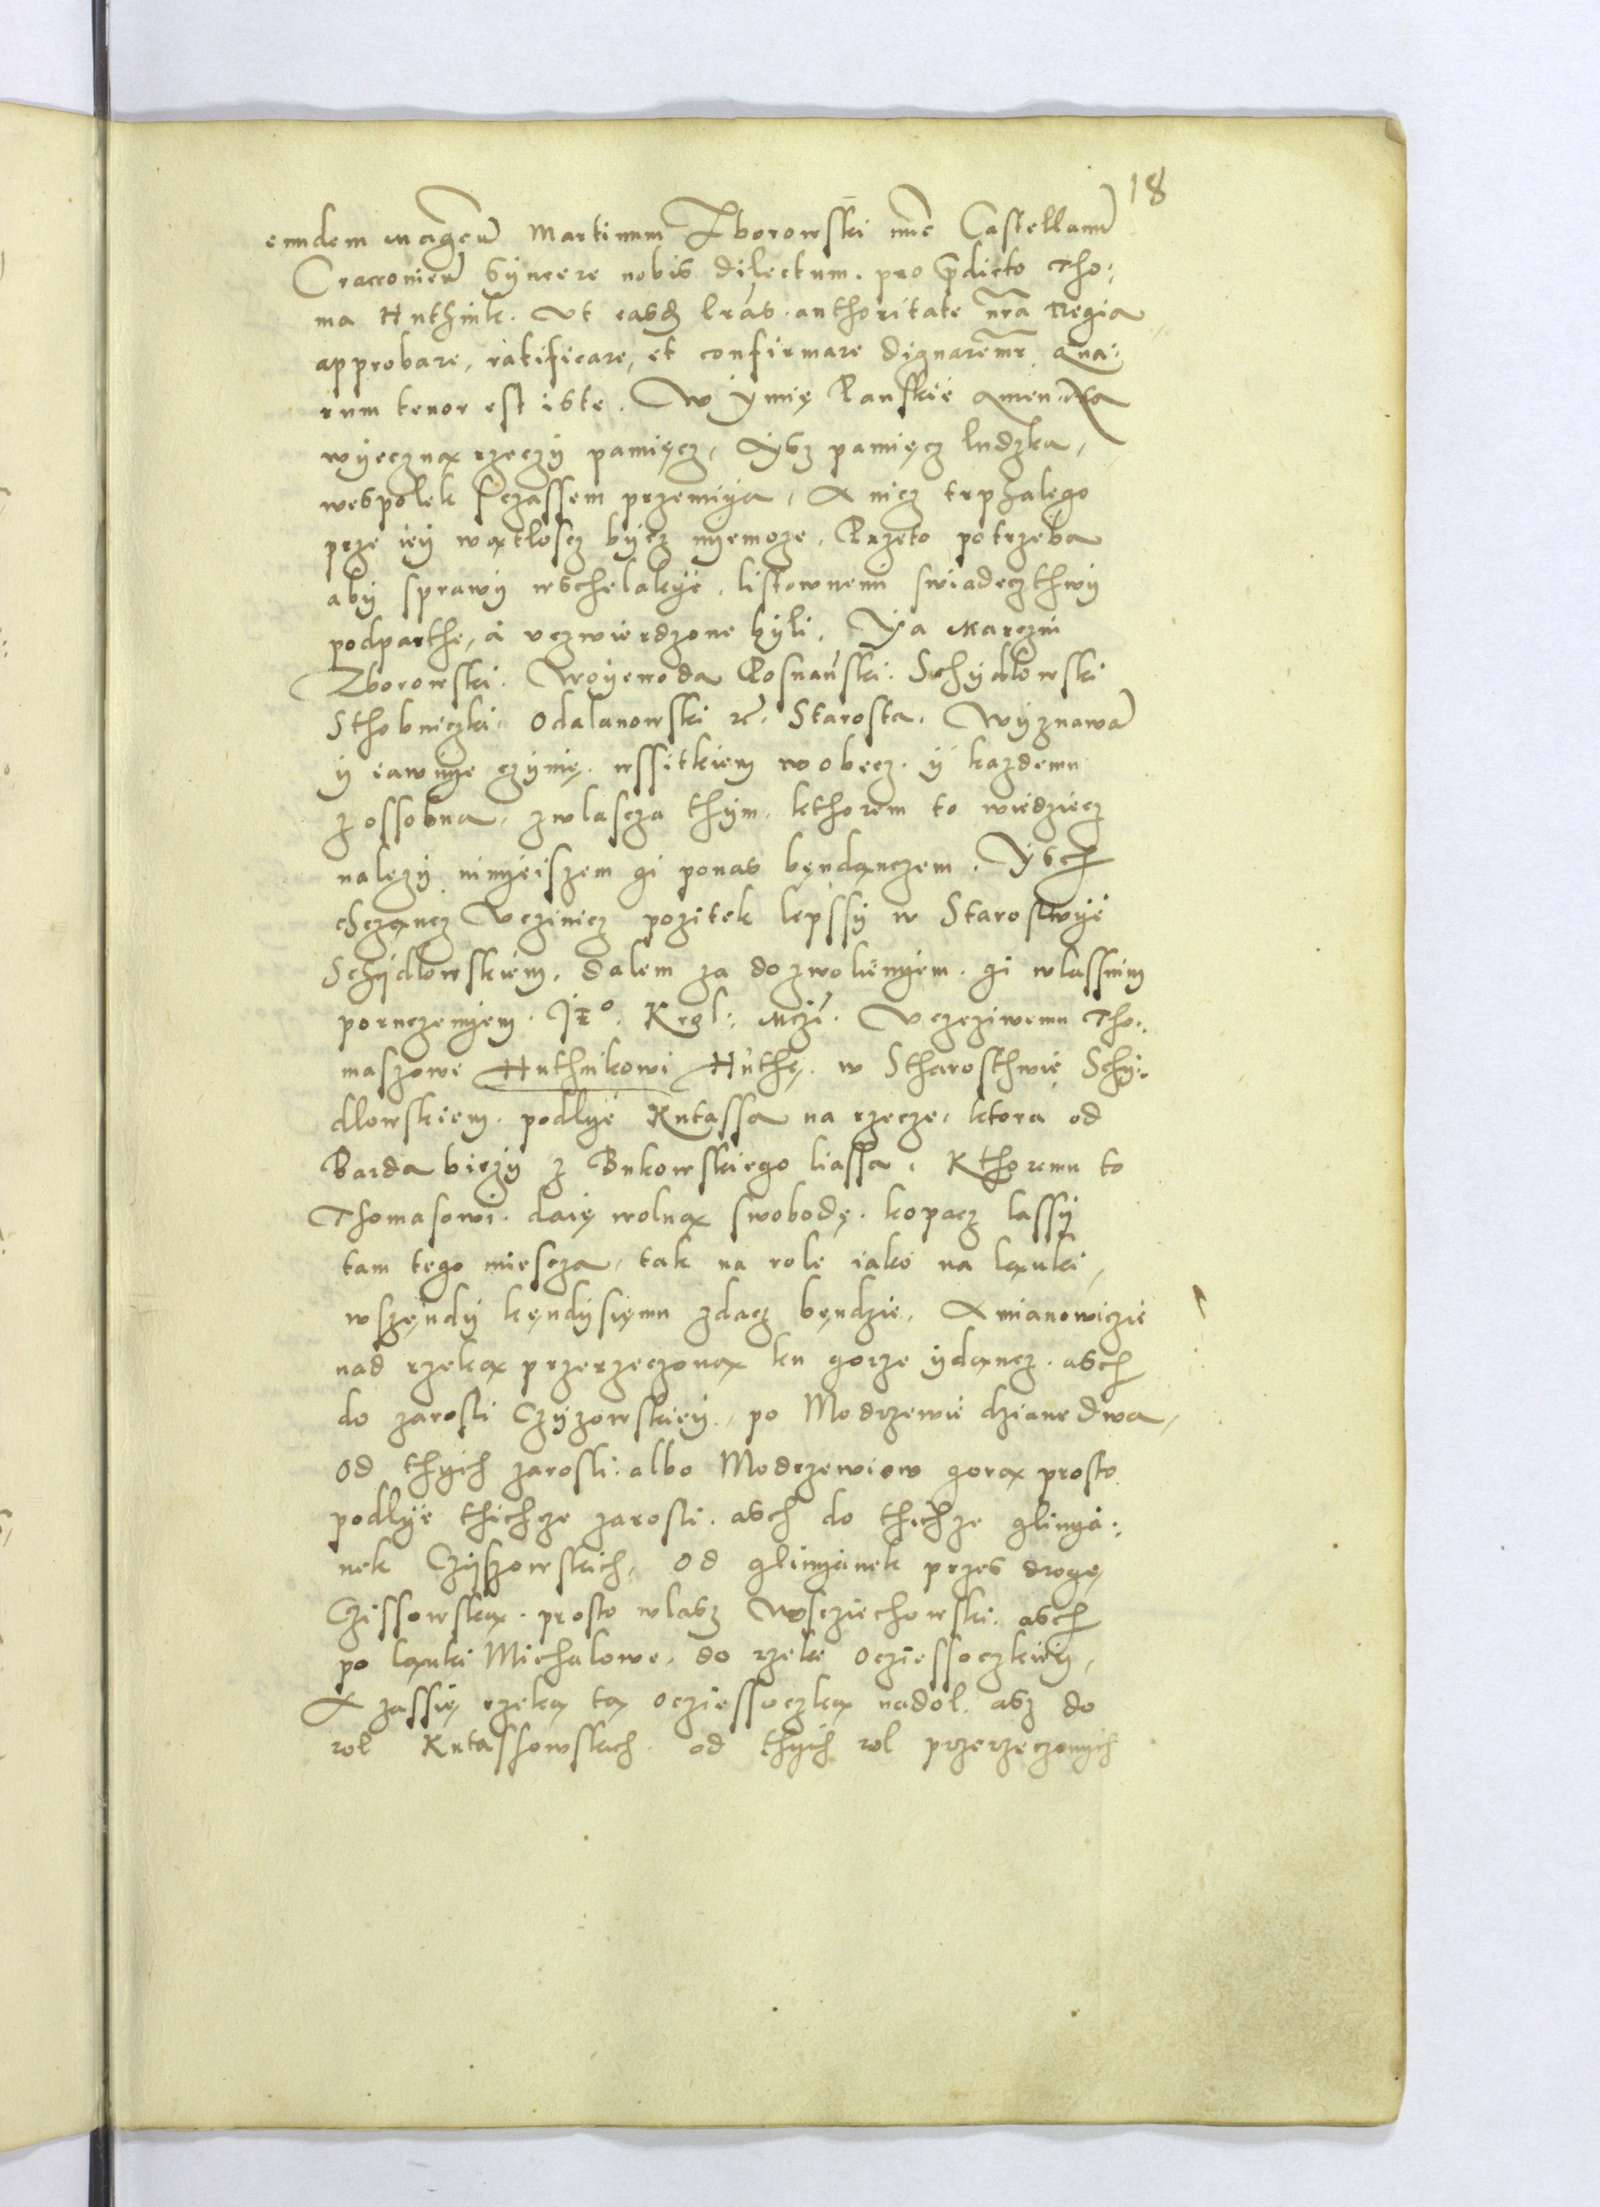 18
eundem Magcu̅ Martinum Zborowski nu̅c Castellanu̅
Cracovien̅ syncere nobis dilectum. pro p̅dicto Tho:
ma Huthnik. Ut easdꝫ l̅ras authoritate n̅ra Regia
approbare, ratificare, et confirmare dignarem̅r Qua:
rum tenor est iste. W Ymię Panskie Amen. Na
wyecznąx rzeczy pamięcz, Ysz pamięcz ludzka,
wespolek sczassem przemiya, A nicz trphalego
prze iey wąxtłoscz bycz nyemoze, Przeto potrzeba
aby sprawy wschelakye, listownemi swiadeczthwy
podparthe, a uczwierdzone byli, Ya Marczin
Zborowski. Woyewoda Posnański. Schydłowski
Sthobniczki. Odalanowski etc. Starosta. Wyznawa̅
y iawnye czynię. wssitkiem wobecz. y kazdemu
z ossobna, zwlascza thym. kthorem to wiedziecz
nalezy ninyeiszem gi ponas będączem. Ysch
chcząncz Uczinicz pozitek lepssy w Starostwye
Schydłowskiem, dalem za dozwolienyem. gi wlassnim
poruczenyem. Je°. Krol: Mczi. Uczcziwemu Tho:
maszowi Huthnikowi Huthę. w Stharosthwie Schy:
dlowskiem. podlye Kutassa na rzecze, ktora od
Barda biezy z Bukowskiego liassa, Kthoremu to
Thomasowi. daię wolnąx swobodę. kopacz lassy
tam tego miescza, tak na role iako na ląxuki,
wszęndy kęndysięmu zdacz będzie, A mianowiczie
nad rzekąx przerzeczonąx ku gorze ydąncz. asch
do zarosli Czyzowskiey, po Modrzewie dziane dwa,
od thych zarosli. albo Modrzewiow gorąx prosto
podlye thichze zarosli. asch do thichze glinya:
nek Czyszowskich, od glinyanek przes drogę
Czissowskąx. prosto wlasz Wosciechowski. asch
po ląxuki Michalowe. do rzeki Ocziessoczkiey,
A zassię rzekąx tąx ocziessoczkąx nadol. asz do
rol Kutassowskich. od thych rol przerzeczonych